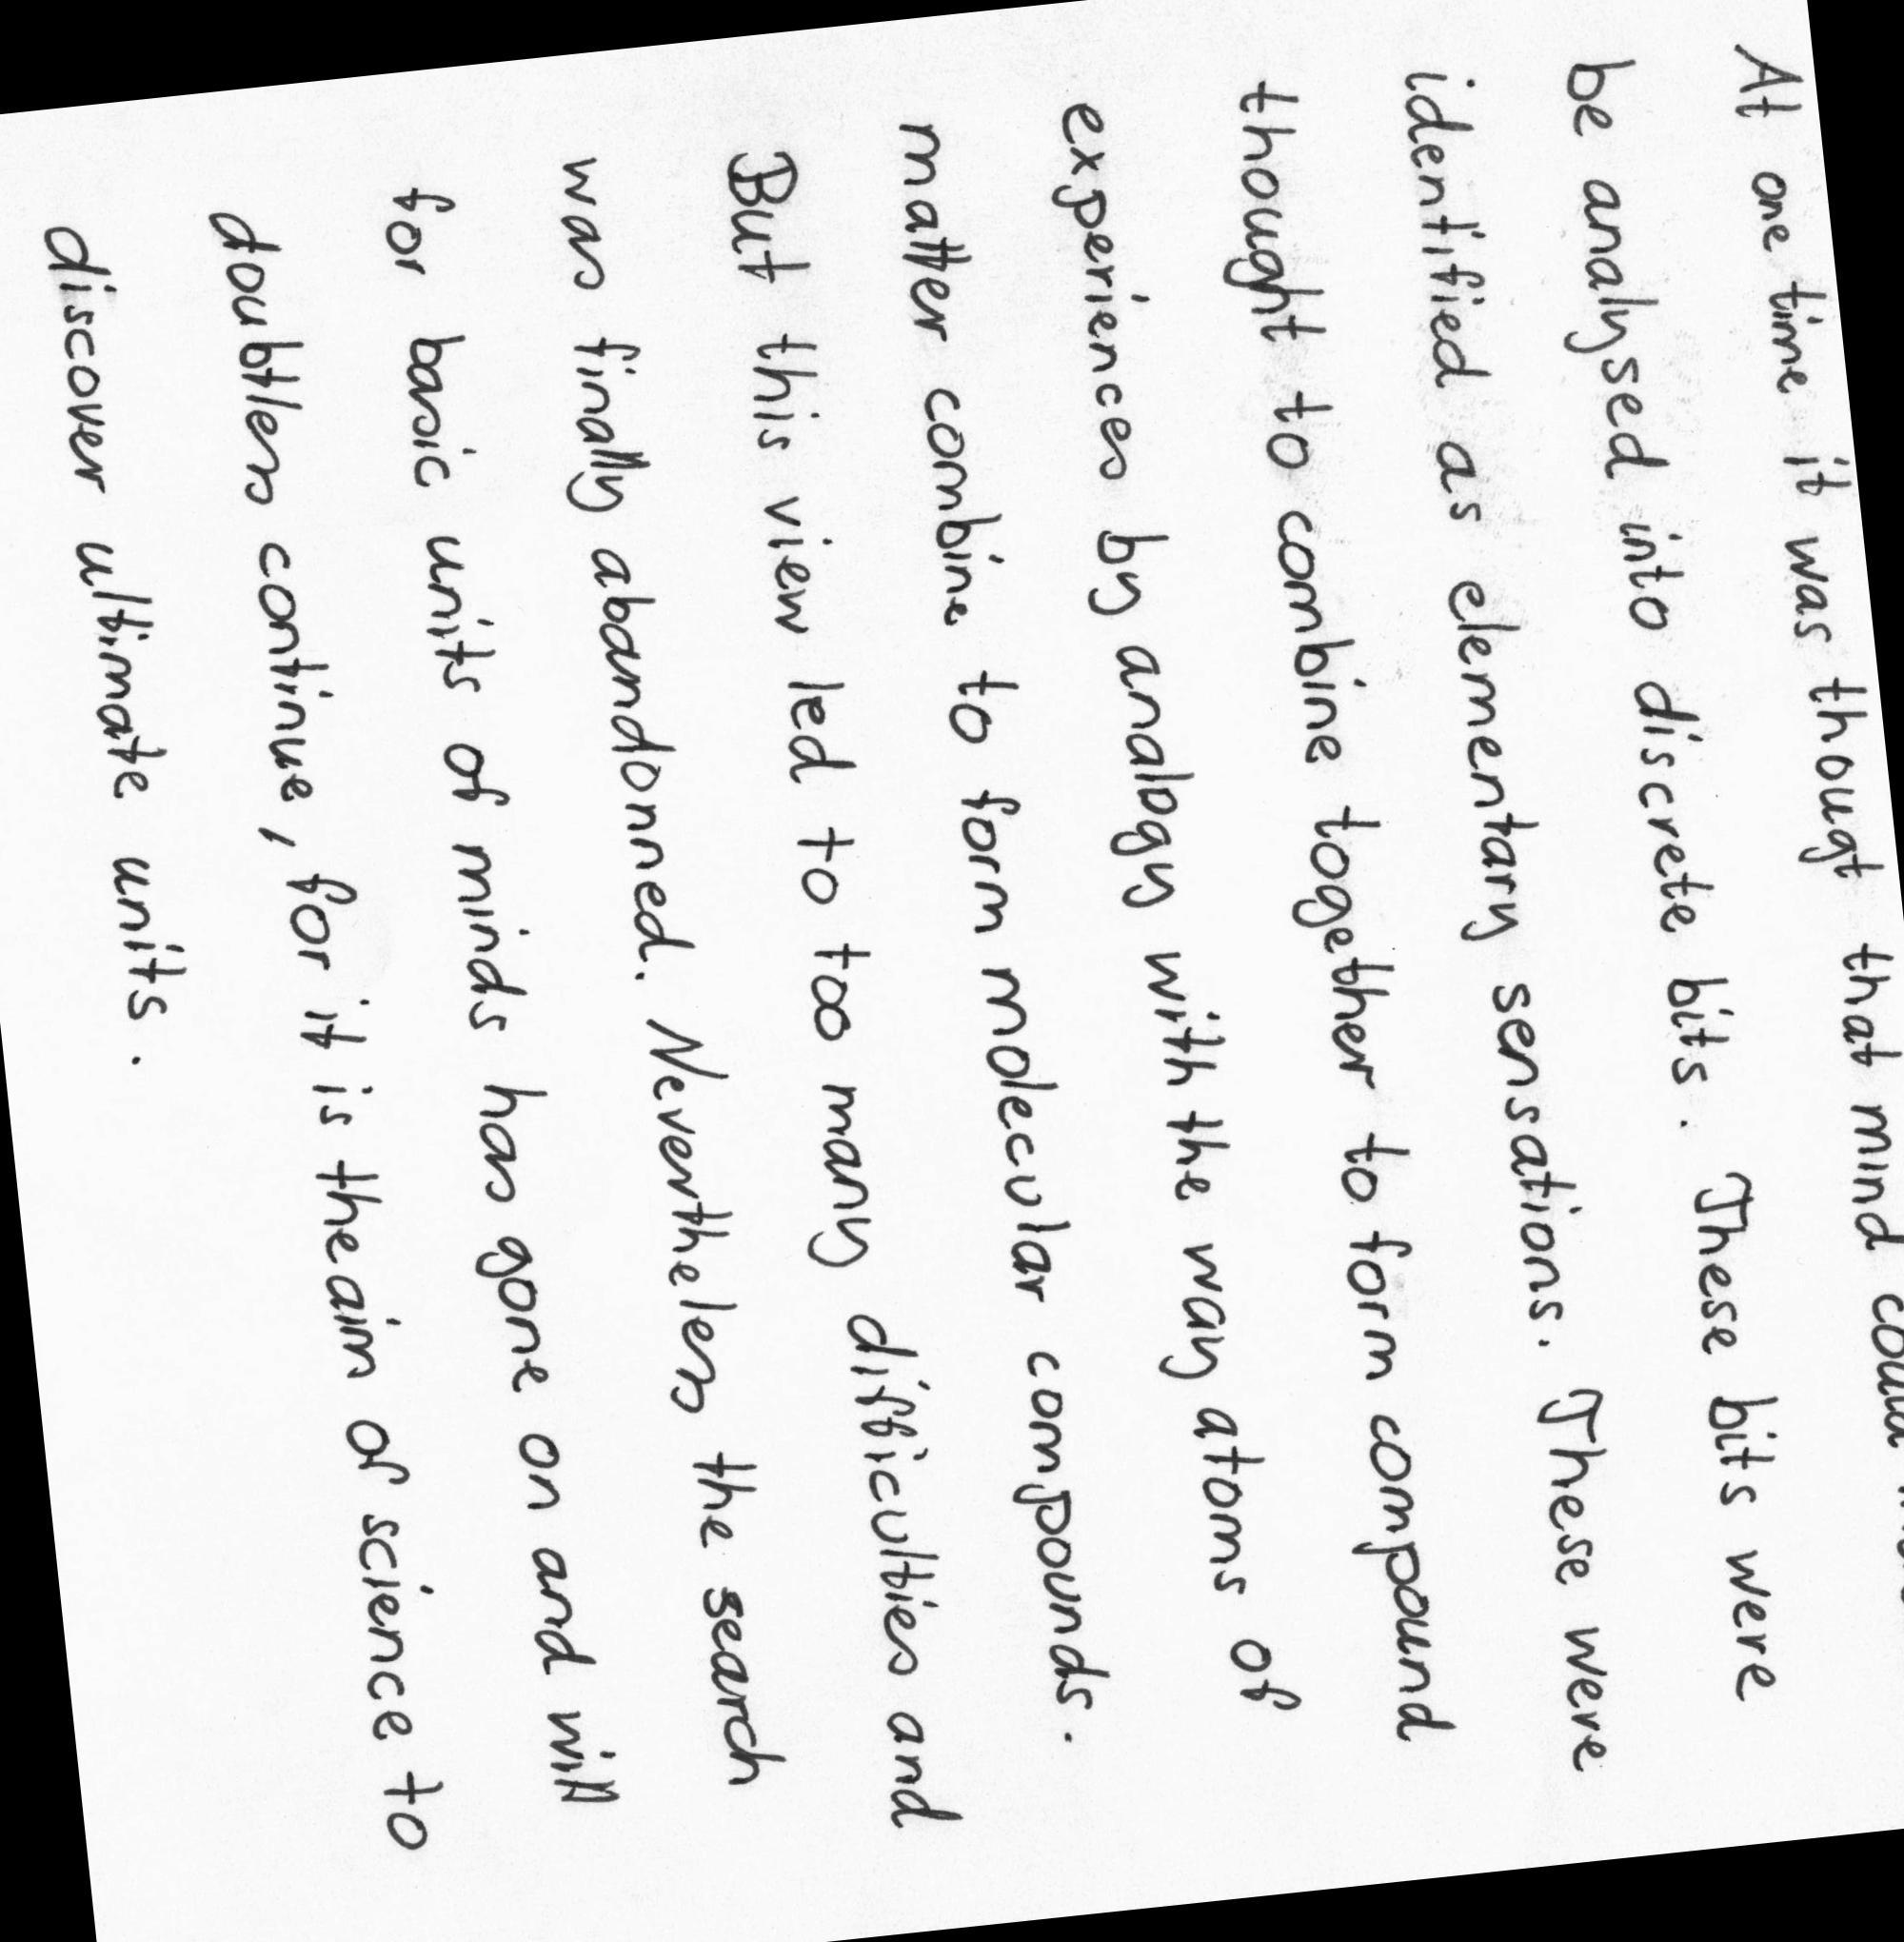 At one time it was thougt that mind could
be analysed into discrete bits. These bits were
identified as elementary sensations. These were
thought to combine together to form compound
experiences by analogy with the way atoms of
matter combine to form molecular compounds.
But this view led to too many difficulties and
was finally abandonned. Nevertheless the search
for basic units of minds has gone on and will
doubtless continue, for it is the aim of science to
discover ultimate units.